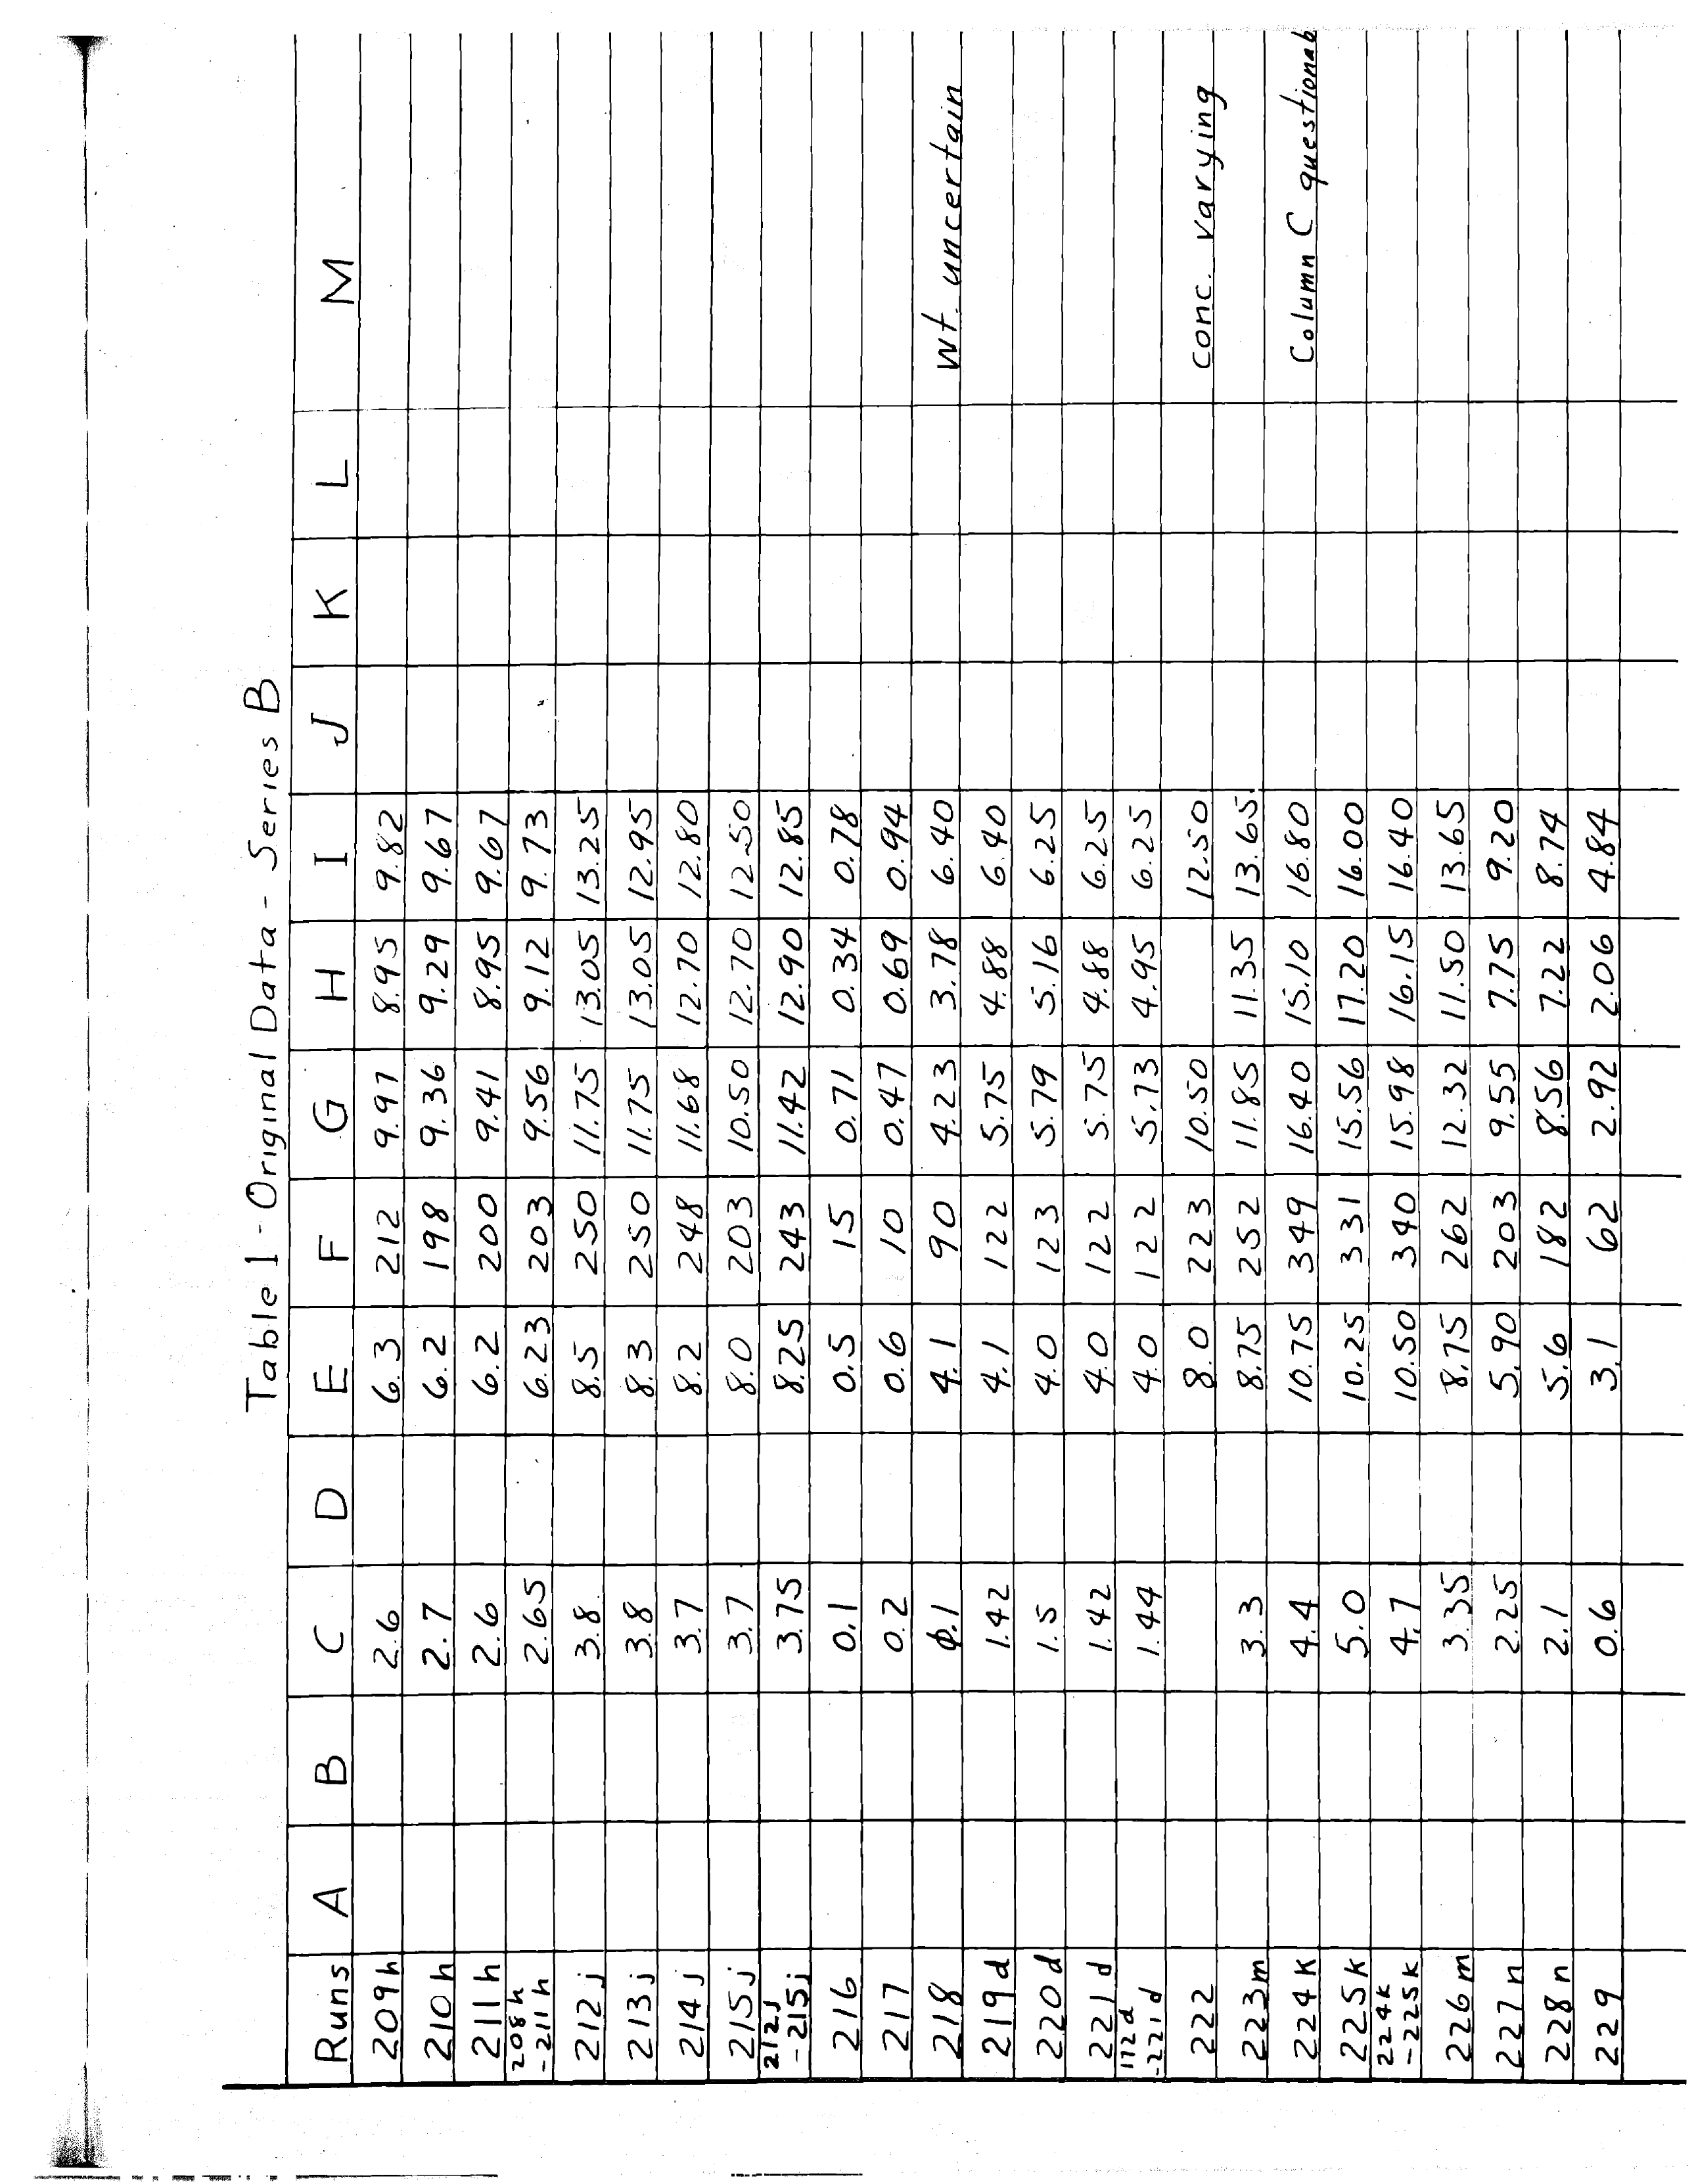 Table I - Original Data - Series B
Runs A B C D E F G H I J K L M
209h 2.6 6.3 212 9.97 8.95 9.82
210h 2.7 6.2 198 9.36 9.29 9.67
211h 2.6 6.2 200 9.41 8.95 9.67
208h -211h 2.65 6.23 203 9.56 9.12 9.73
212j 3.8 8.5 250 11.75 13.05 13.25
213j 3.8 8.3 250 11.75 13.05 12.95
214j 3.7 8.2 248 11.68 12.70 12.80
215j 3.7 8.0 203 10.50 12.70 12.50
212j -215j 3.75 8.25 243 11.42 12.90 12.85
216 0.1 0.5 15 0.71 0.34 0.78
217 0.2 0.6 10 0.47 0.69 0.94
218 1.1 4.1 90 4.23 3.78 6.40 wt. uncertain
219d 1.42 4.1 122 5.75 4.88 6.40
220d 1.5 4.0 123 5.79 5.16 6.25
221d 1.42 4.0 122 5.75 4.88 6.25
172d -221d 1.44 4.0 122 5.73 4.95 6.25
222 8.0 223 10.50 12.50 conc. varying
223m 3.3 8.75 252 11.85 11.35 13.65
224k 4.4 10.75 349 16.40 15.10 16.80 Column C questionab
225k 5.0 10.25 331 15.56 17.20 16.00
224k -225k 4.7 10.50 340 15.98 16.15 16.40
226m 3.35 8.75 262 12.32 11.50 13.65
227n 2.25 5.90 203 9.55 7.75 9.20
228n 2.1 5.6 182 8.56 7.22 8.74
229 0.6 3.1 62 2.92 2.06 4.84